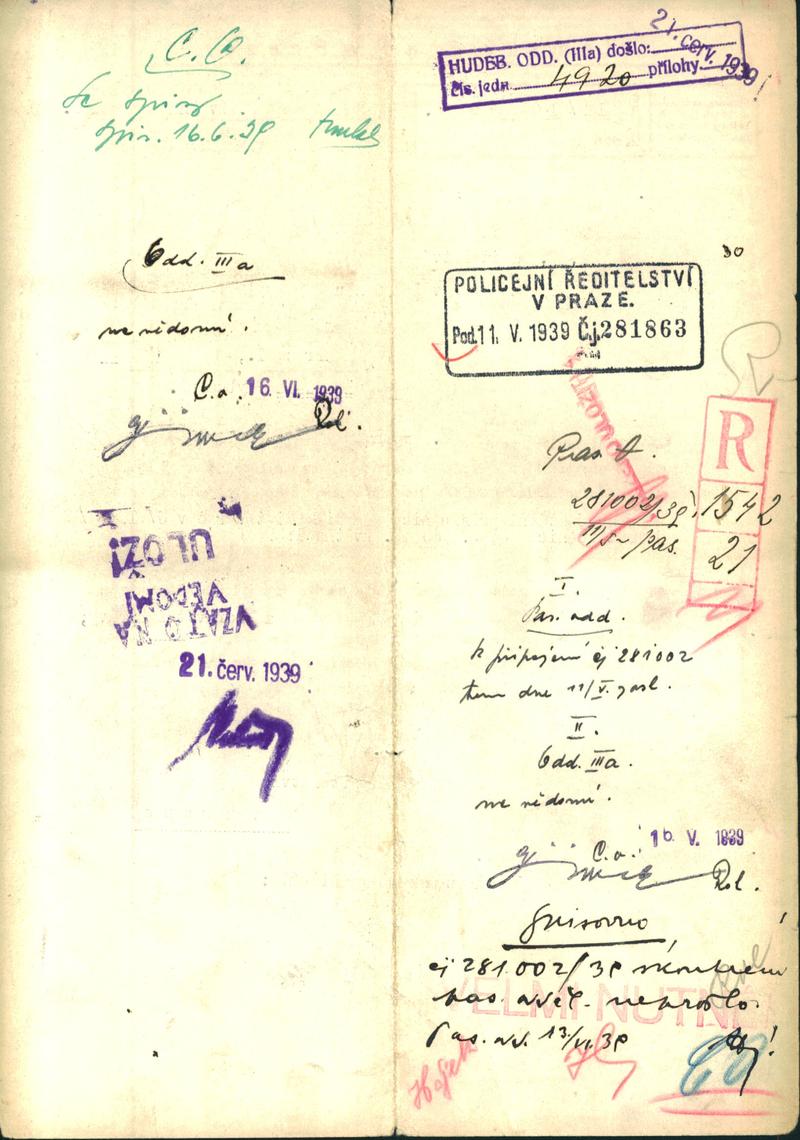 C.O.
16.6.39
Odd. IIIa
na vědomí.
C.o. 16. VI. 1939
Rol.
ULOŽ!
VZATO NA
VĚDOMÍ
21. červ. 1939
HUDEB. ODD. (IIIa) došlo: 21. červ. 1939
čís. jedn. 4920 přílohy
30
POLICEJNÍ ŘEDITELSTVÍ
V PRAZE.
Pod. 11. V. 1939 Čj. 281863
R
1542
21
281002/39.
11/5 pas.
I.
Pas. odd.
k připojení čj 281002
tam dne 11/V. zasl.
II.
Odd. IIIa.
na vědomí.
C.o. 16. V. 1939
Rol.
Spisovno
čj 281.002/39
VELMI NUTNÉ
neprošlo.
Pas. odd. 13/VI. 39